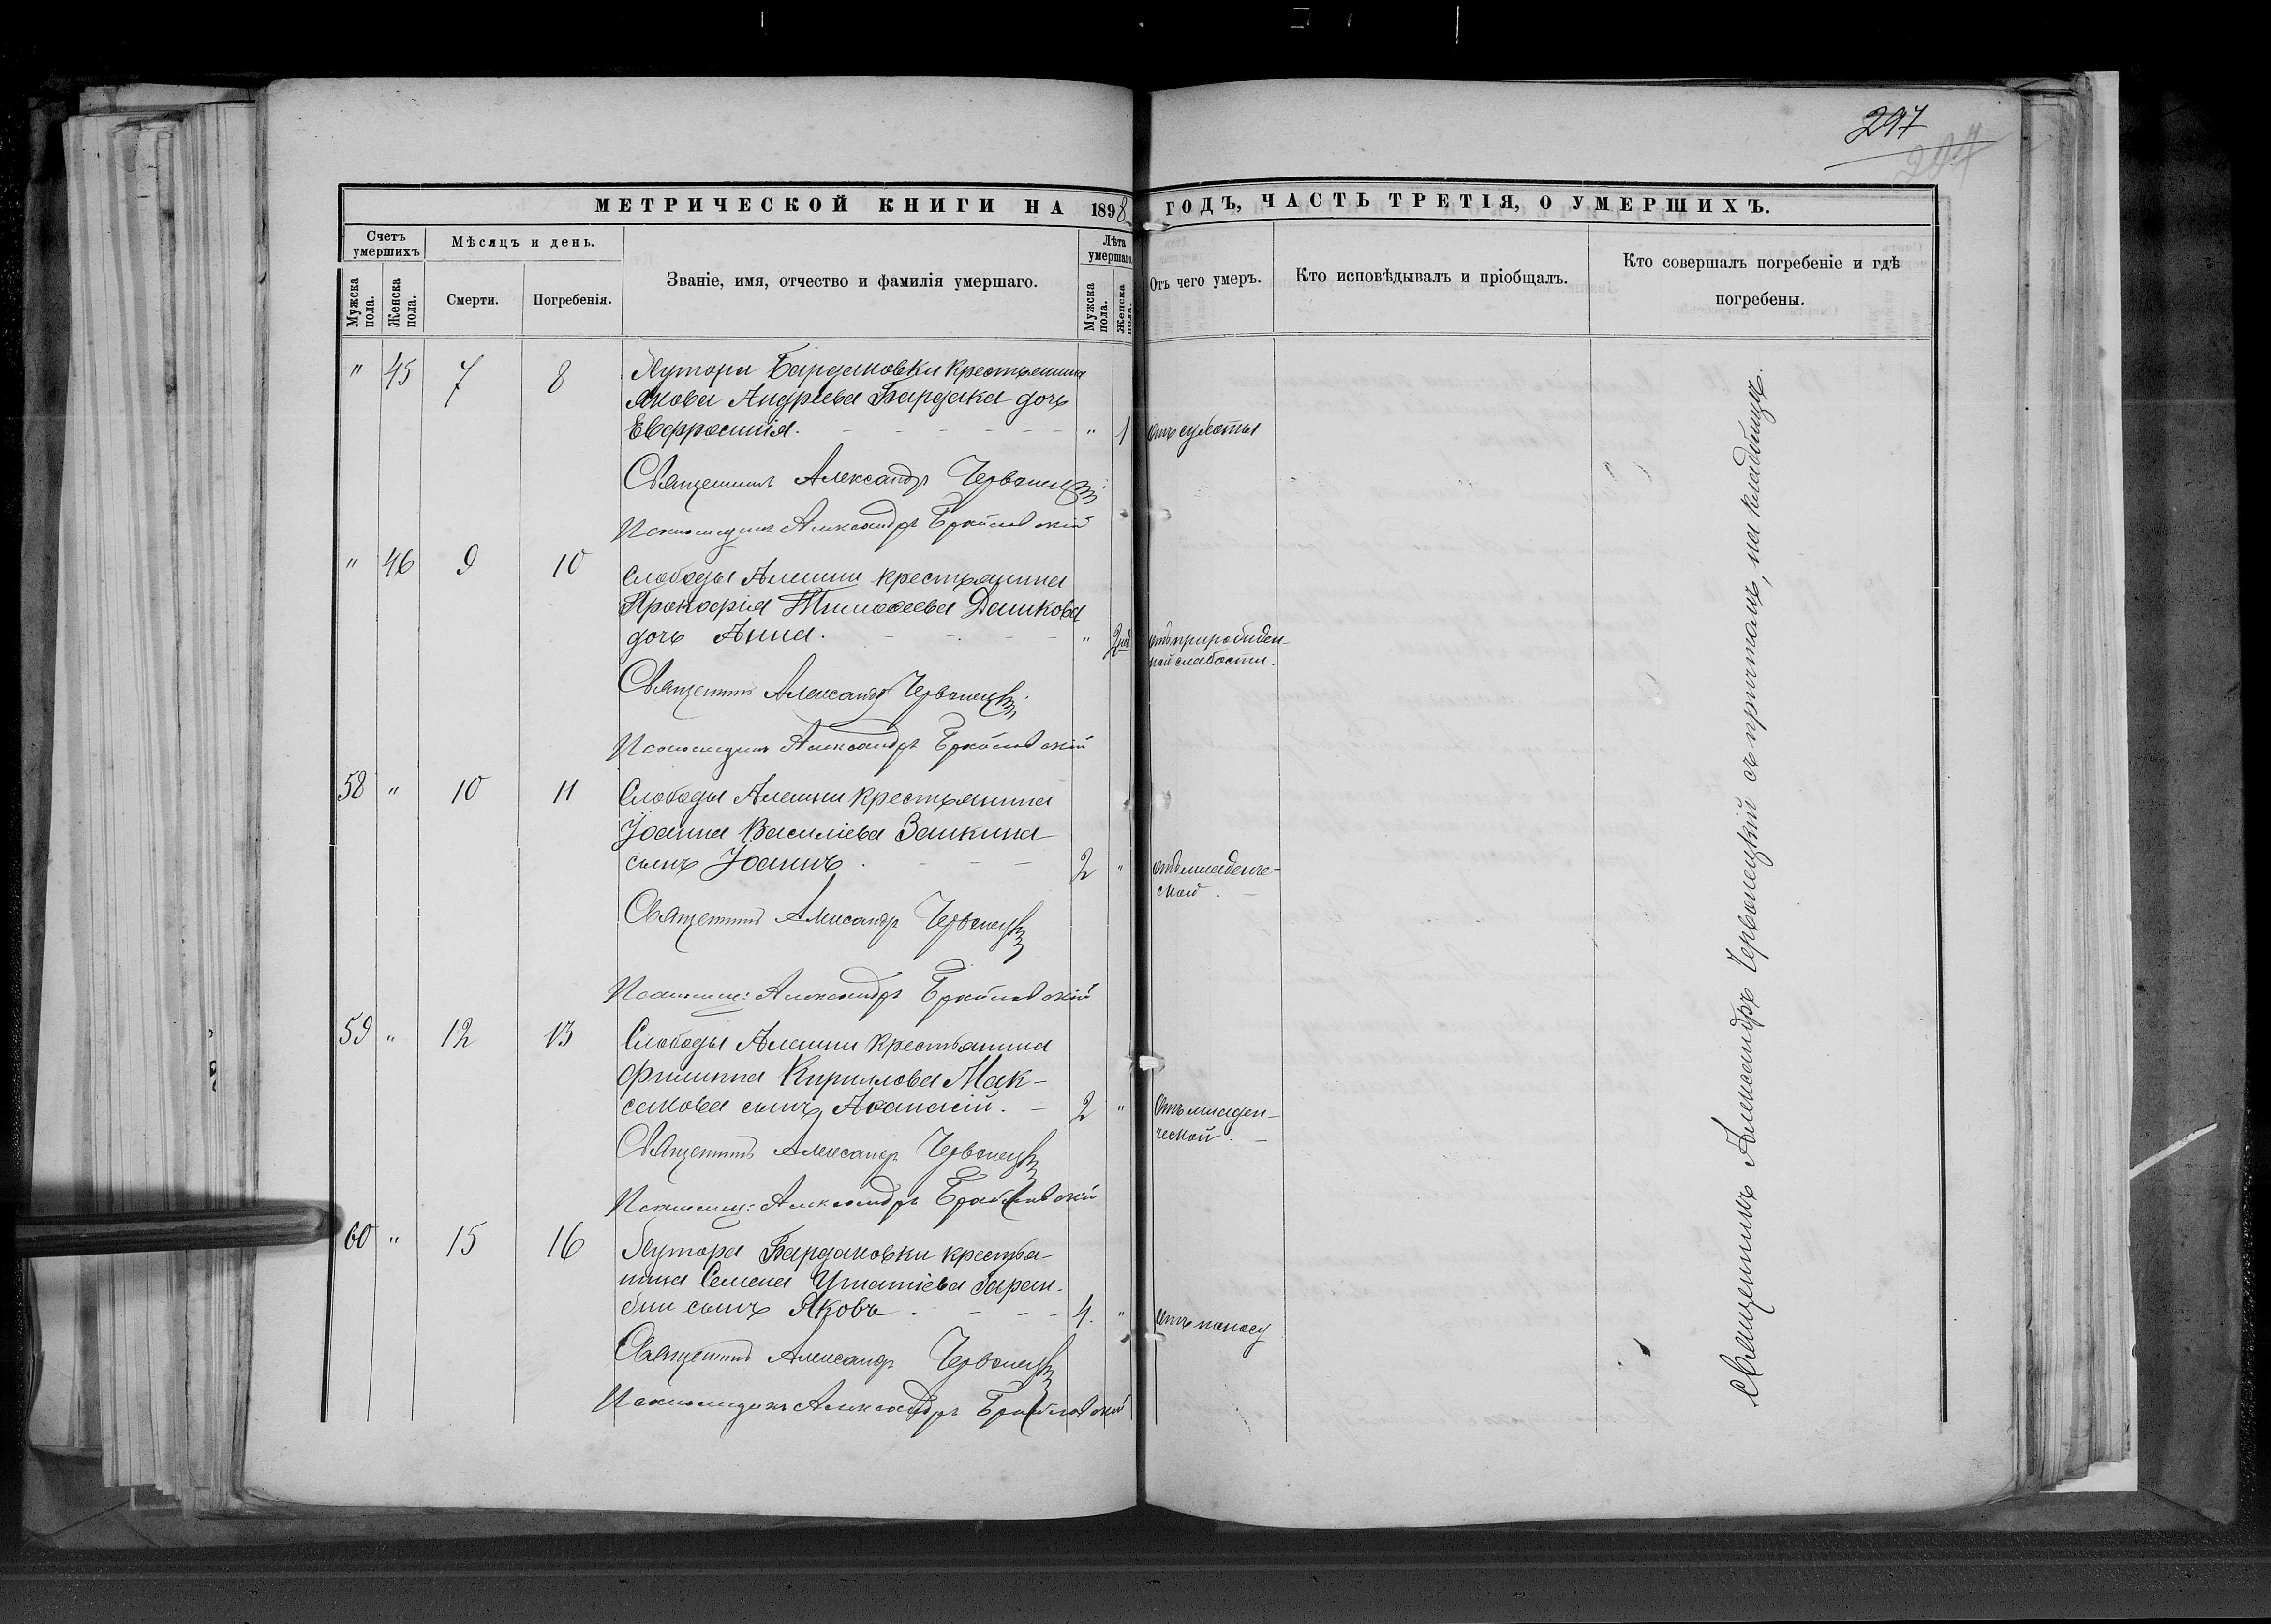 297
МЕТРИЧЕСКОЙ КНИГИ НА 1898 ГОДЪ, ЧАСТЬ ТРЕТІЯ, О УМЕРШИХЪ.
Счетъ умершихъ
Мѣсяцъ и день.
Званіе, имя, отчество и фамилія умершаго.
Лѣта умершаго
Отъ чего умеръ.
Кто исповѣдывалъ и пріобщалъ.
Кто совершалъ погребеніе и гдѣ
погребены.
Мужска пола.
Женска пола.
Смерти.
Погребенія.
Мужска пола.
Женска пола.
" 45 7 8 Хутора Бардаковки крестьянина
Якова Андреева Бардака дочь
Евфросинія. " 1 отъ сухоты
Священникъ Александръ Червонецкій
Псаломщикъ Александръ
" 46 9 10 Слободы Алешни крестьянина
Прокофія Тимоѳеева Дашкова
дочь Анна. " 2 нед отъ природжен-
ной слабости.
Священникъ Александръ Червонецкій
Псаломщикъ Александръ
58 " 10 11 Слободы Алешни крестьянина
Іоанна Василіева Заикина
сынъ Іоаннъ. 2 " отъ младенче-
ской.
Священникъ Александръ Червонецкій
Псаломщ: Александръ
59 " 12 13 Слободы Алешни крестьянина
Филиппа Кириллова Мак-
сакова сынъ Аѳанасій. 2 " отъ младен-
ческой.
Священникъ Александръ Червонецкій
Псаломщ: Александръ
60 " 15 16 Хутора Бардаковки крестья-
нина Семена Игнатіева
сынъ Яковъ. 4. " отъ поносу
Священникъ Александръ Червонецкій
Псаломщикъ Александръ
Священникъ Александръ Червонецкій съ причтомъ, на кладбищѣ.